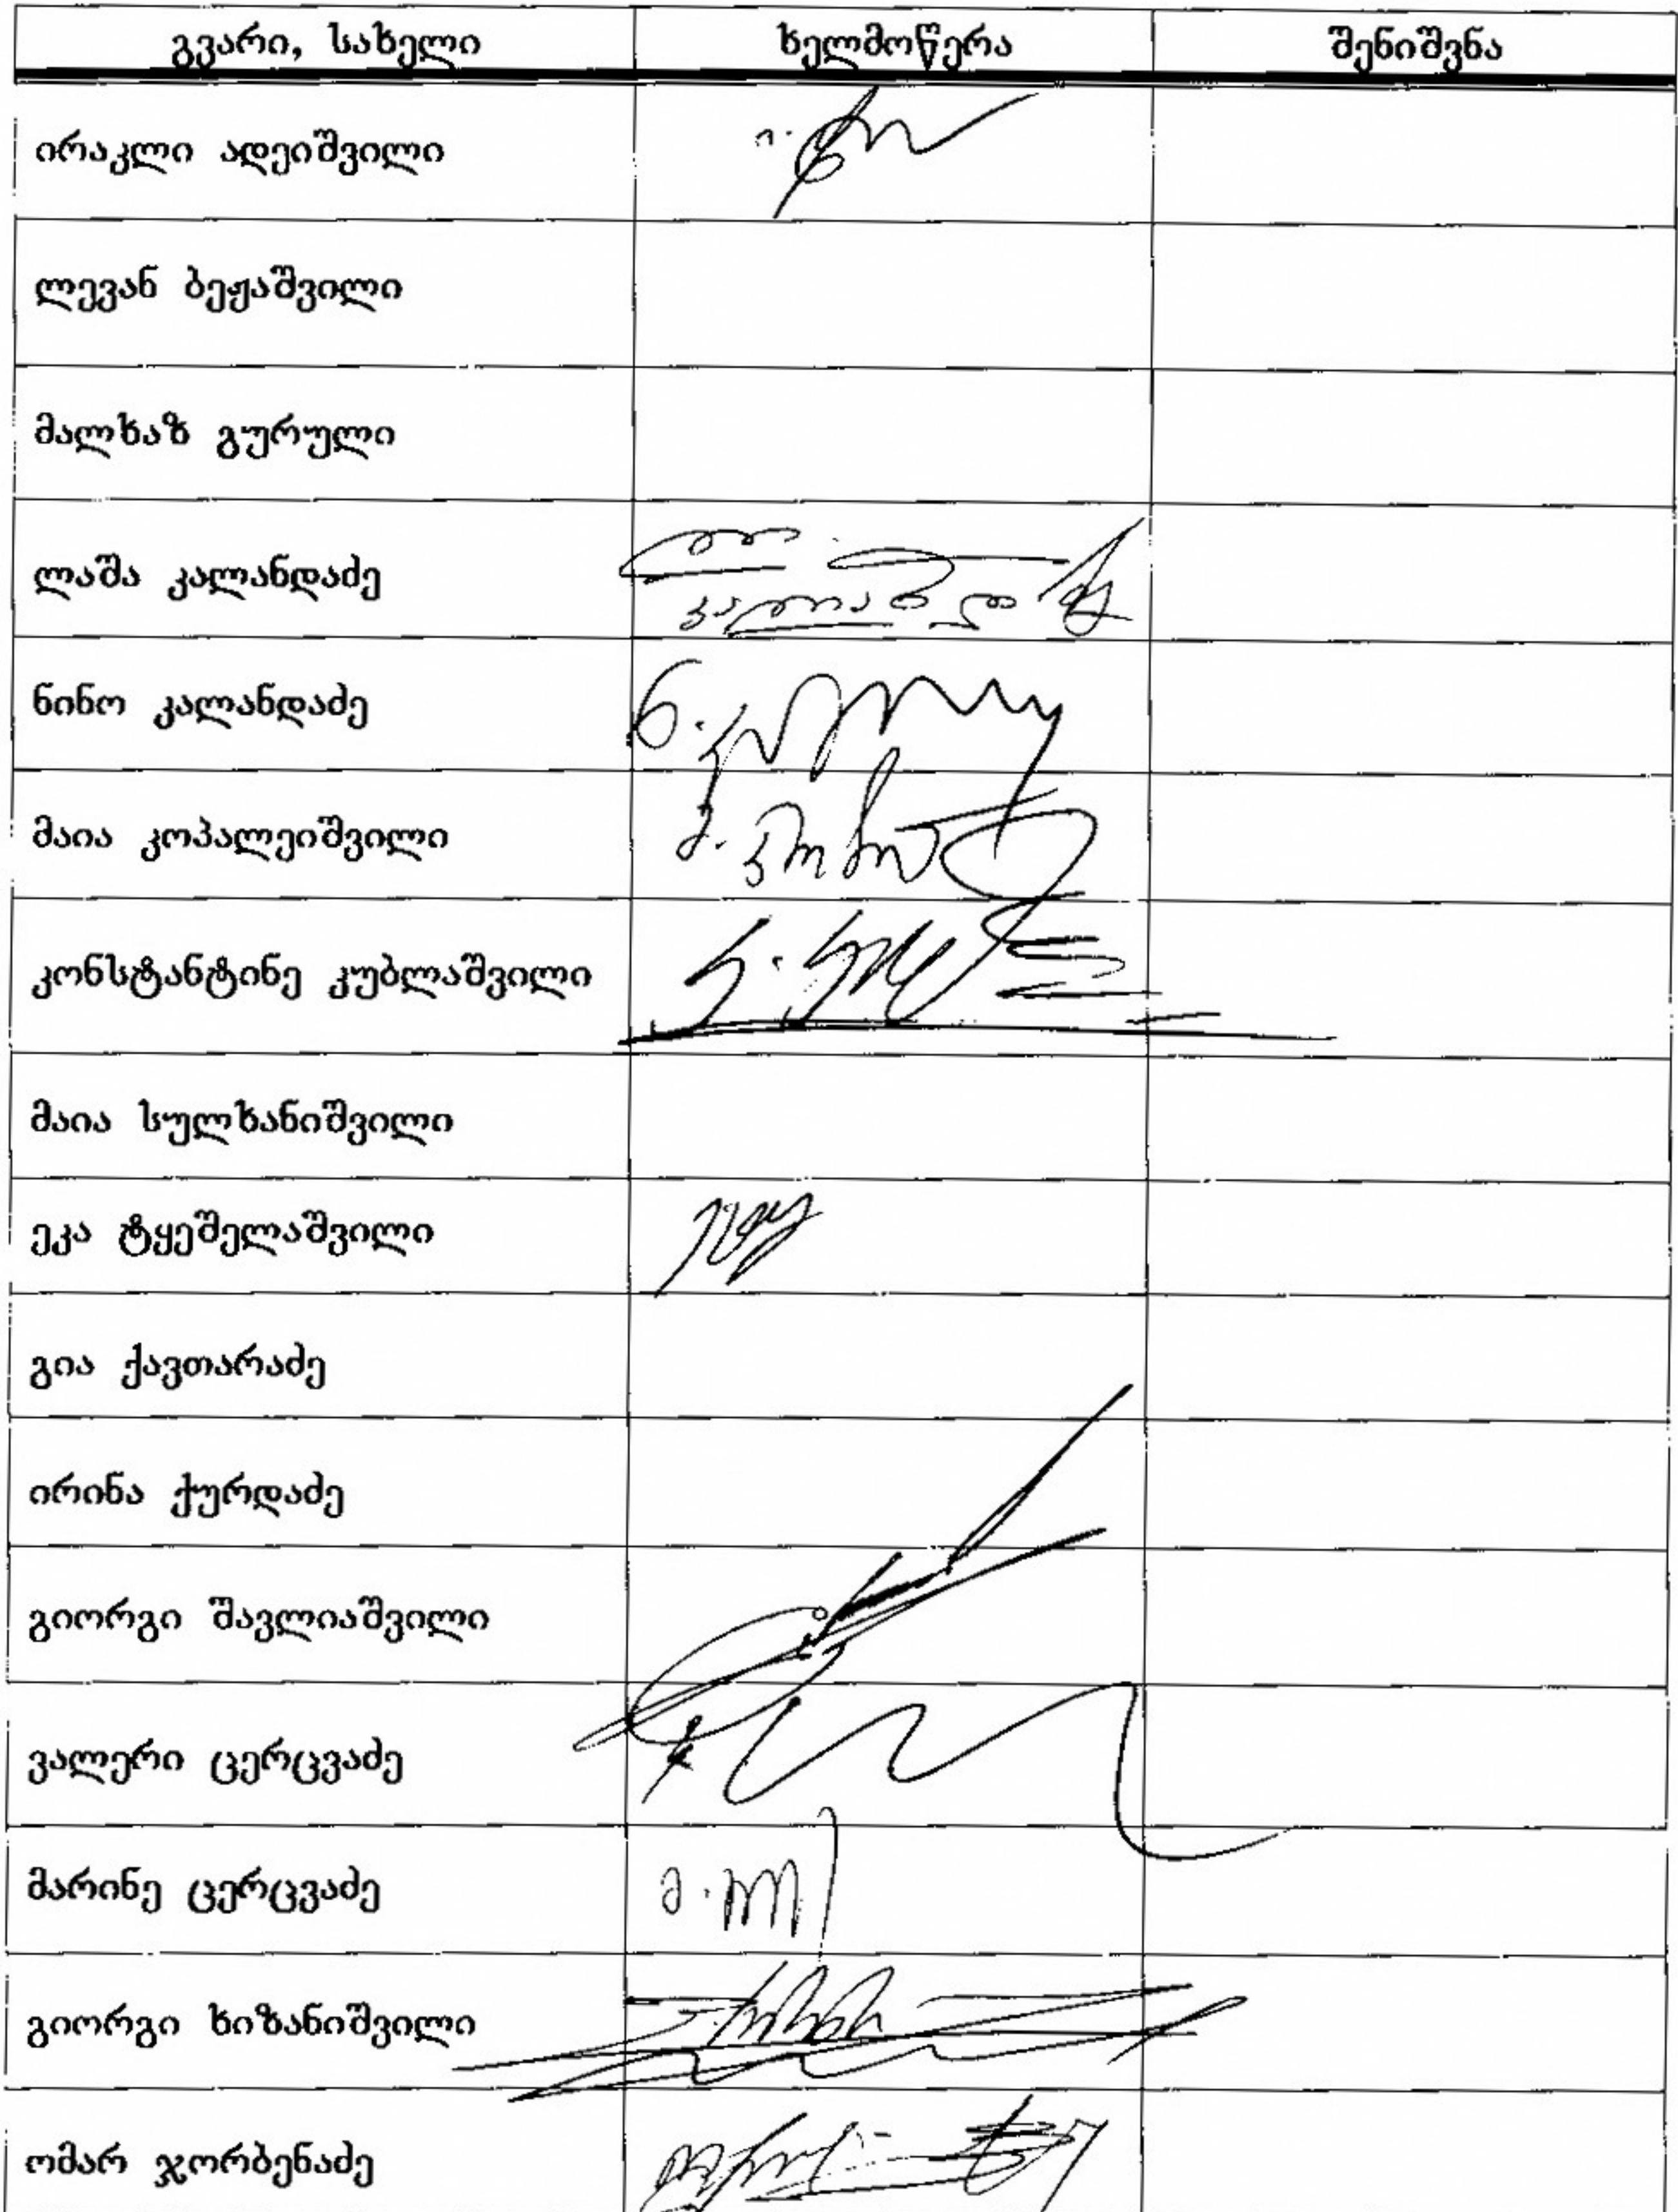 გვარი, სახელი ხელმოწერა შენიშვნა
ირაკლი ადეიშვილი
ლევან ბეჟაშვილი
მალხაზ გურული
ლაშა კალანდაძე
ნინო კალანდაძე
მაია კოპალეიშვილი
კონსტანტინე კუბლაშვილი
მაია სულხანიშვილი
ეკა ტყეშელაშვილი
გია ქავთარაძე
ირინა ქურდაძე
გიორგი შავლიაშვილი
ვალერი ცერცვაძე
მარინე ცერცვაძე
გიორგი ხიზანიშვილი
ომარ ჯორბენაძე